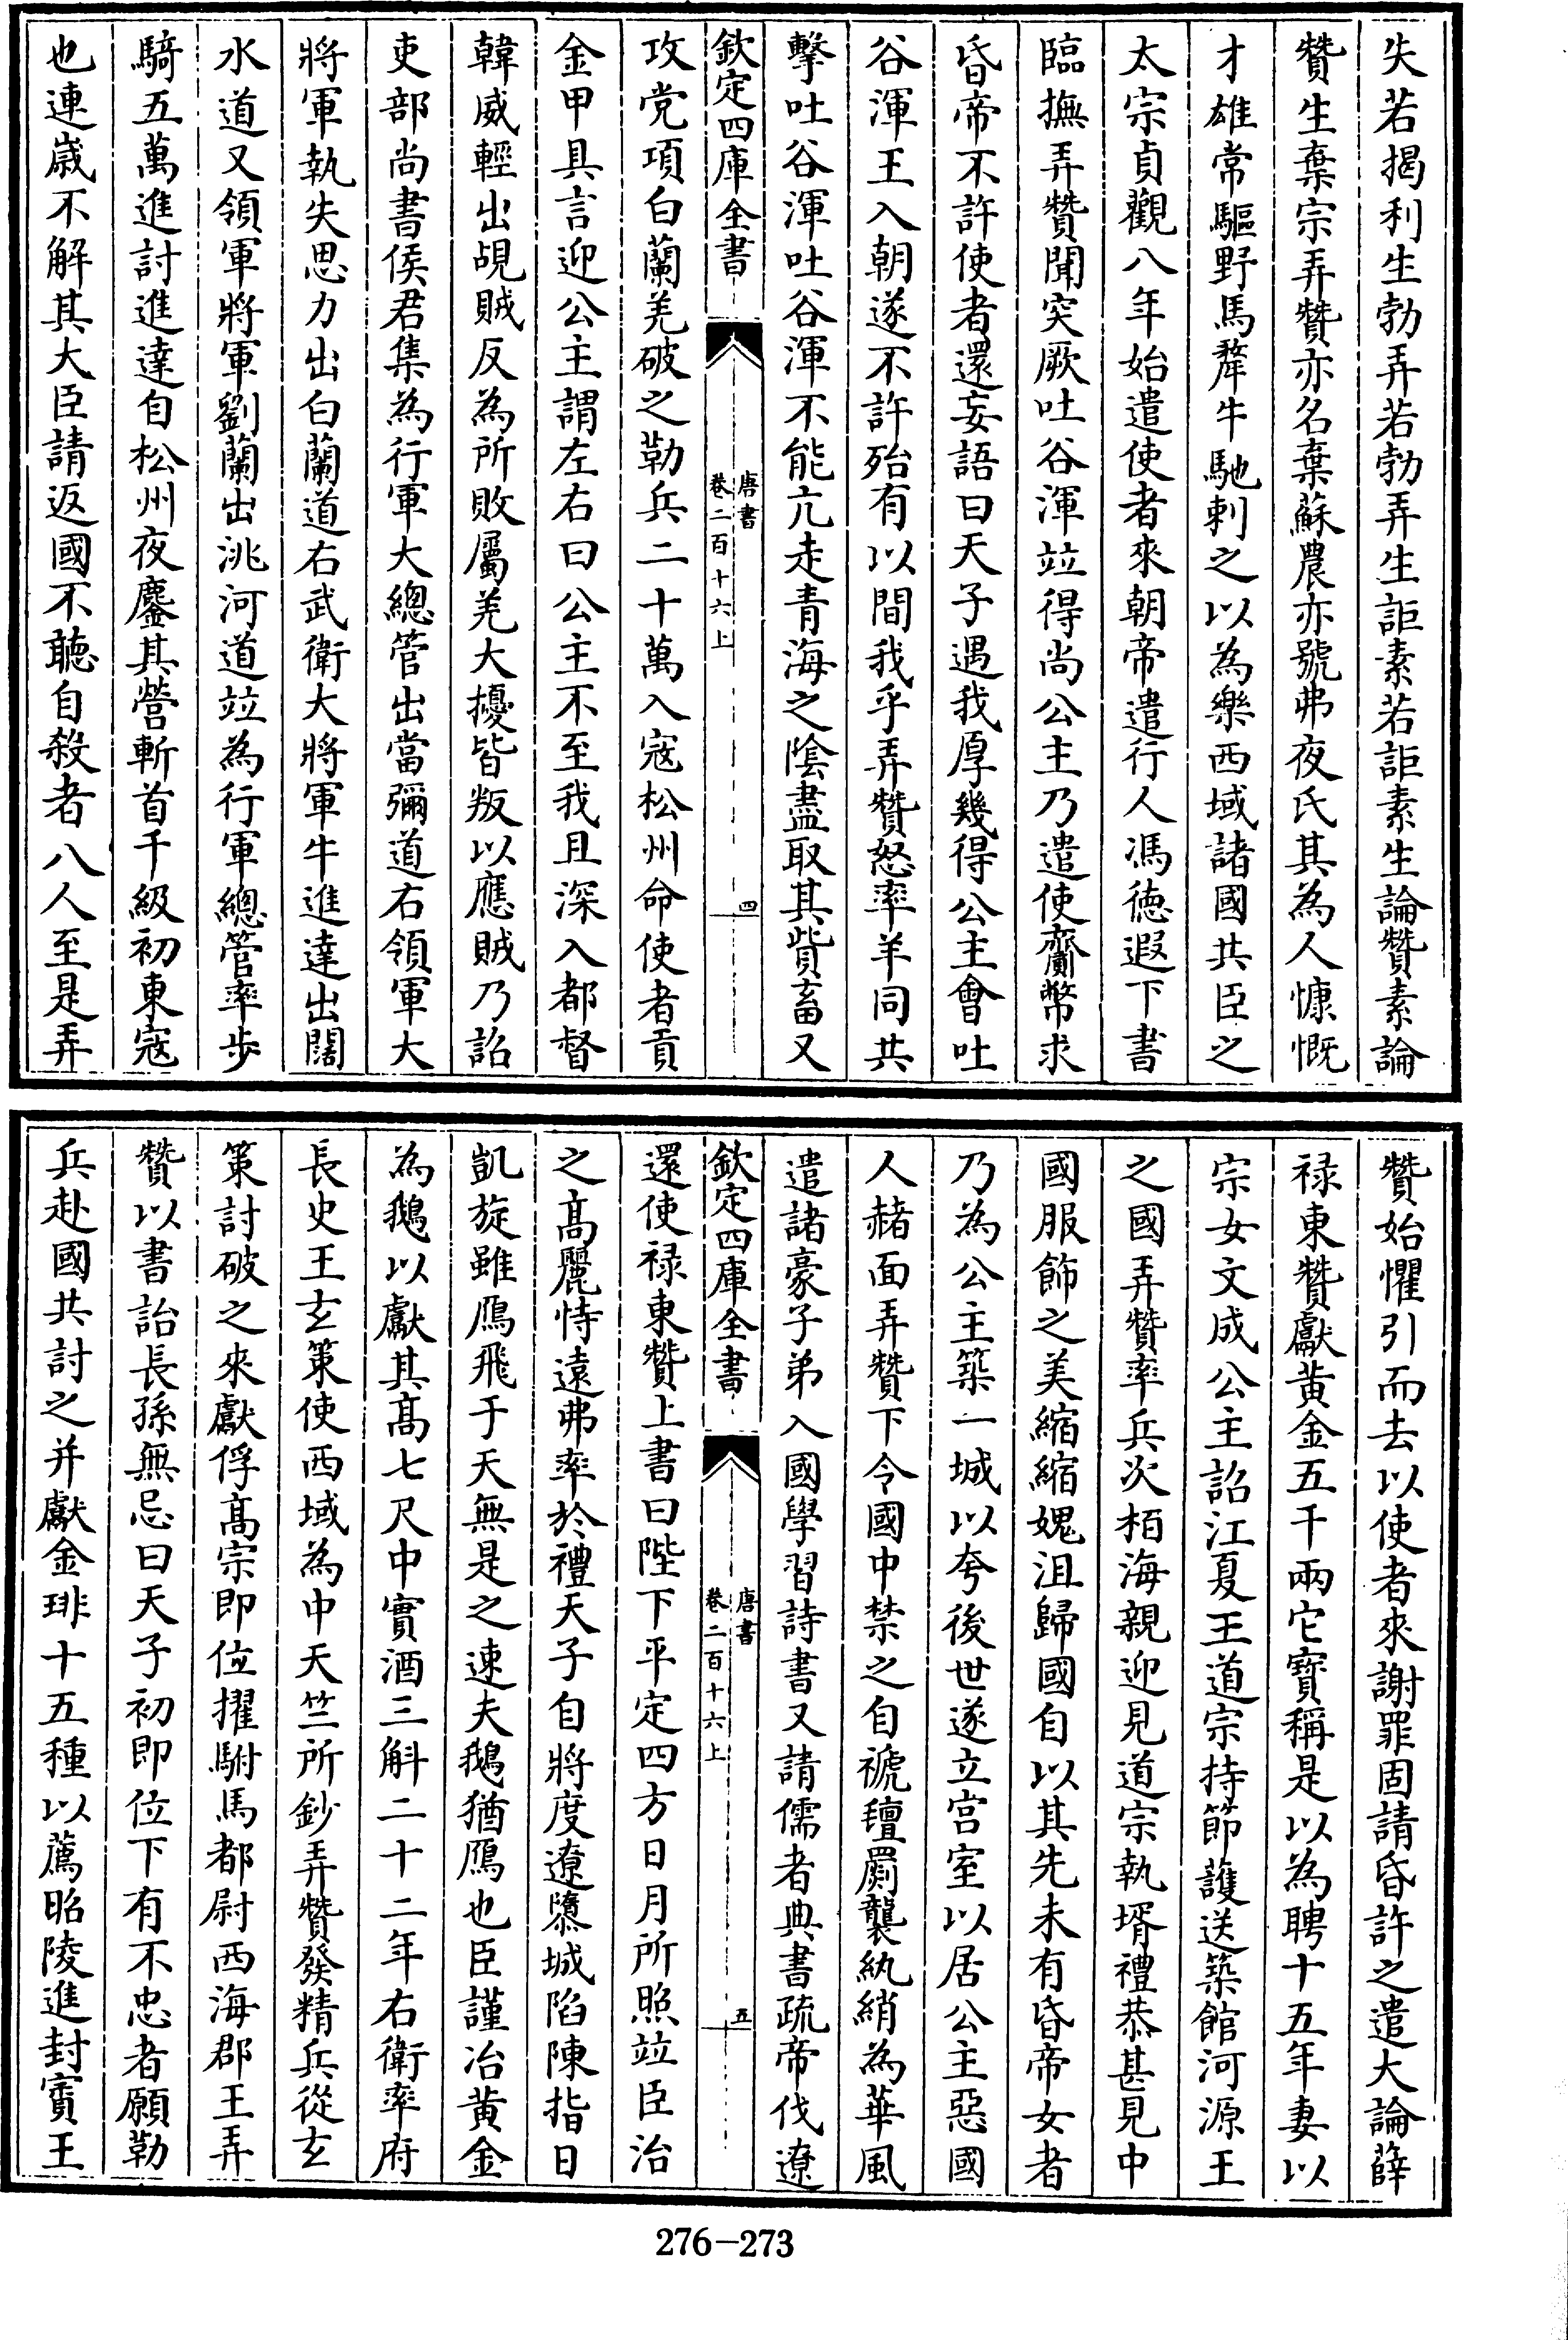 失若揭利生勃弄若勃弄生詎素若詎素生論贊素論
贊生棄宗弄贊亦名棄蘇農亦號弗夜氏其為人慷慨
才雄常驅野馬犛牛馳刺之以為樂西域諸國共臣之
太宗貞觀八年始遣使者來朝帝遣行人馮徳遐下書
臨撫弄贊聞突厥吐谷渾竝得尚公主乃遣使齎幣求
昏帝不許使者還妄語曰天子遇我厚幾得公主會吐
谷渾王入朝遂不許殆有以間我乎弄贊怒率羊同共
擊吐谷渾吐谷渾不能亢走青海之隂盡取其貲畜又
欽定四庫全書
唐書
卷二百十六上
四
攻党項白蘭羌破之勒兵二十萬入寇松州命使者貢
金甲具言迎公主謂左右曰公主不至我且深入都督
韓威輕出覘賊反為所敗屬羌大擾皆叛以應賊乃詔
吏部尚書侯君集為行軍大總管出當彌道右領軍大
將軍執失思力出白蘭道右武衛大將軍牛進達出闊
水道又領軍將軍劉蘭出洮河道竝為行軍總管率步
騎五萬進討進達自松州夜鏖其營斬首千級初東寇
也連嵗不解其大臣請返國不聽自殺者八人至是弄
贊始懼引而去以使者來謝罪固請昏許之遣大論薛
禄東贊獻黄金五千兩它寳稱是以為聘十五年妻以
宗女文成公主詔江夏王道宗持節護送築館河源王
之國弄贊率兵次栢海親迎見道宗執壻禮恭甚見中
國服飾之美縮縮媿沮歸國自以其先未有昏帝女者
乃為公主築一城以夸後世遂立宫室以居公主惡國
人赭面弄贊下令國中禁之自褫氊罽襲紈綃為華風
遣諸豪子弟入國學習詩書又請儒者典書疏帝伐遼
欽定四庫全書
唐書
卷二百十六上
五
還使禄東贊上書曰陛下平定四方日月所照竝臣治
之髙麗恃遠弗率於禮天子自將度遼隳城陷陳指日
凱旋雖鴈飛于天無是之速夫鵝猶鴈也臣謹冶黄金
為鵝以獻其髙七尺中實酒三斛二十二年右衛率府
長史王玄策使西域為中天竺所鈔弄贊發精兵從玄
策討破之來獻俘髙宗即位擢駙馬都尉西海郡王弄
贊以書詒長孫無忌曰天子初即位下有不忠者願勒
兵赴國共討之并獻金琲十五種以薦昭陵進封賓王
276-273